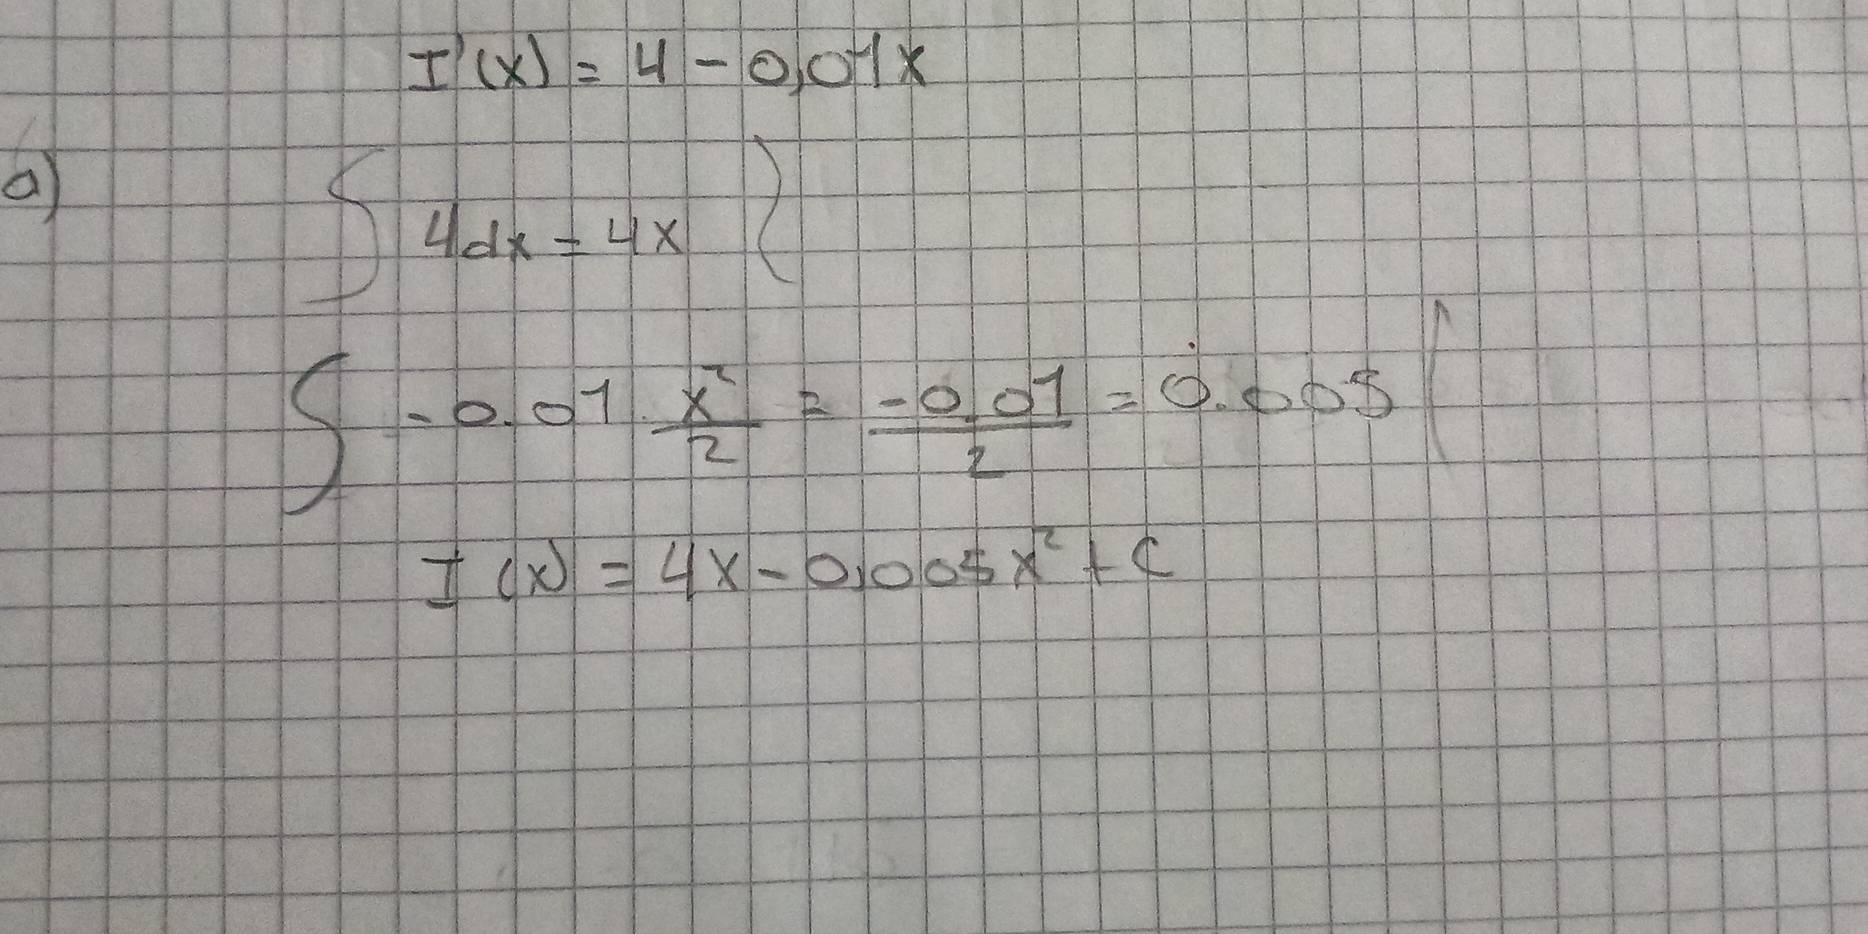 I'(x) = 4 - 0,01x
a)
∫ 4dx = 4x
∫ -0.01 · x²/2 = -0.01/2 = 0.005
I(x) = 4x - 0,005x² + C